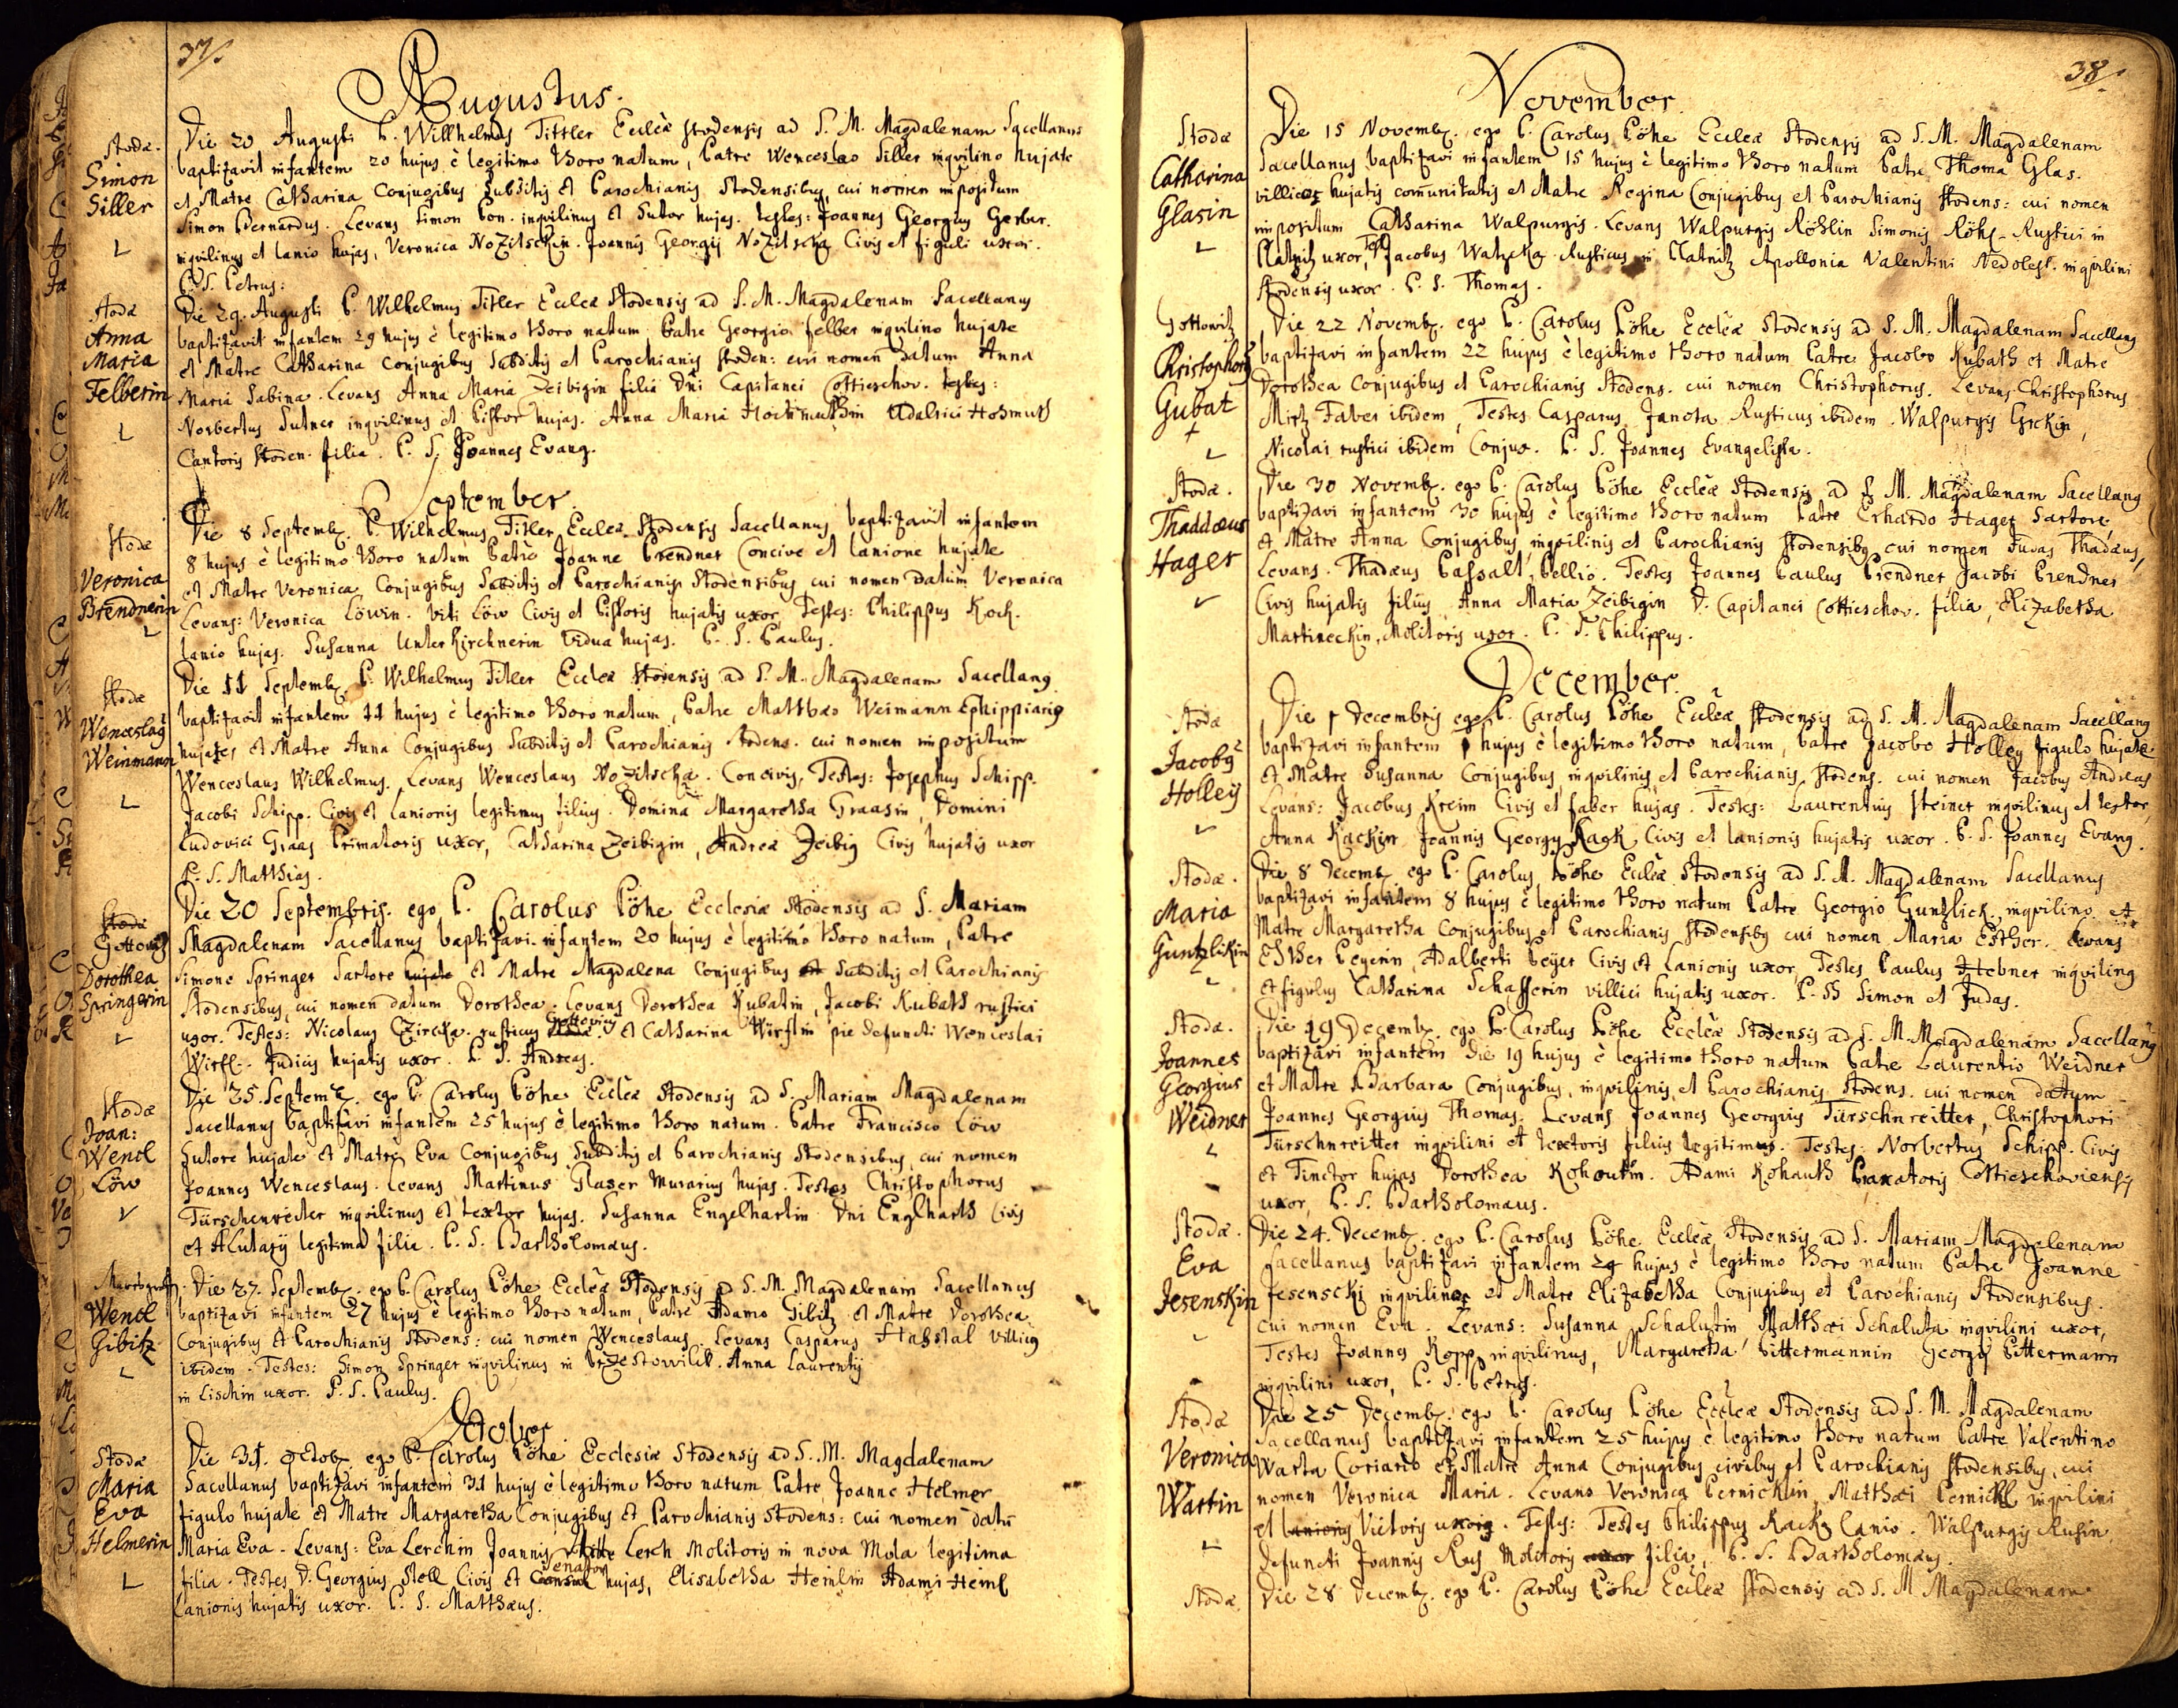 37.
Augustus.
Stodæ.
Simon
Siller
Die 20 Augusti P. Willhelmus Tittler Eccleæ stodensis ad S. M. Magdalenam Sacellanus
baptizavit infantem 20 hujus è legitimo thoro natum, Patre Wenceslao Siller inqvilino hujate
et Matre Catharina Conjugibus Subditis et Parochianis Stodensibus, cui nomen impositum
Simon Bernardus. Levans Simon inqvilinus et Sutor hujas. testes: Joannes Georgius Gerber
inqvilinus et lanio hujas, Veronica Nozitschkin. Joannis Georgij Nozitscka Civis et figuli uxor.
P. S. Petrus:
Stodæ
Anna
Maria
Felberin
Die 29. Augusti P. Wilhelmus Titler Eccleæ Stodensis ad S. M. Magdalenam Sacellanus
baptizavit infantem 29 hujus è legitimo thoro natum Patre Georgio felber inqvilino hujate
et Matre Catharina Conjugibus Subditis et Parochianis stoden: cui nomen datum Anna
Maria Sabina. Levans Anna Maria Zeibigin filia Dni Capitanei Cottieschov. testes:
Norbertus Sutner inqvilinus et Pistor hujas. Anna Maria Hochmuthin Udalrici Hohmuth
Cantoris stoden. filia. P. S. Joannes Evang.
September
Stodæ
Veronica
Brendnerin
Die 8 Septemb. P. Wilhelmus Titler Eccleæ Stodensis Sacellanus baptizavit infantem
8 hujus è legitimo thoro natum Patre Joanne Brendner Concive et lanione hujate
et Matre Veronica Conjugibus Subditis et Parochianis Stodensibus cui nomen datum Veronica
Levans: Veronica Löwin. Viti Löw Civis et Pistoris hujatis uxor, Testes: Philippus Koch.
lanio hujas. Susanna Unterkirchnerin Vidua hujas. P. S. Paulus.
Stodæ
Wenceslaus
Weinmann
Die 11 Septemb. P. Wilhelmus Titler Eccleæ Stodensis ad S. M. Magdalenam Sacellanus
baptizavit infantem 11 hujus è legitimo thoro natum, Patre Matthæo Weimann Ephippiario
hujate, et Matre Anna Conjugibus Subditis et Parochianis Stodens. cui nomen impositum
Wenceslaus Wilhelmus. Levans Wenceslaus Nozitscka. Concivis, Testes: Josephus Schipp.
Jacobi Schipp. Civis et lanionis legitimus filius. Domina Margaretha Graasin, Domini
Ludovici Graas Primatoris uxor, Catharina Zeibigin, Andreæ Zeibig Civis hujatis uxor
P. S. Matthias.
Stodæ
Gottowitz
Dorothea
Springerin
Die 20 Septembris. ego P. Carolus Pöhe Ecclesiæ Stodensis ad S. Mariam
Magdalenam Sacellanus baptizavi infantem 20 hujus è legitimo thoro natum, Patre
Simone Springer Sartore hujate et Matre Magdalena Conjugibus et Subditis et Parochianis
Stodensibus, cui nomen datum Dorothea. Levans Dorothea Kubatin, Jacobi Kubath rustici
uxor. Testes: Nicolaus Czircka. rusticus Gottovicij et Catharina Wirflin pie defuncti Wenceslai
Wirfl. Judicis hujatis uxor. P. S. Andreas.
Stodæ
Joan:
Wencl
Löw
Die 25. Septemb. ego P. Carolus Pöhe Eccleæ Stodensis ad S. Mariam Magdalenam
Sacellanus baptizavi infantem 25 hujus è legitimo thoro natum. Patre Francisco Löw
Sutore hujate et Matre Eva Conjugibus Subditis et Parochianis Stodensibus, cui nomen
Joannes Wenceslaus. Levans Martinus Glaser Murarius hujas. Testes Christophorus
Türschenreiter inqvilinus et textor hujas. Susanna Engelhartin Dni Englharth Civis
et Alutarij legitima filia. P. S. Bartholomæus.
Wencl
Gibitz
Die 27. Septemb. ego P. Carolus Pöhe Eccleæ Stodensis ad S. M. Magdalenam Sacellanus
baptizavi infantem 27 hujus è legitimo thoro natum, Patre Adamo Gibitz et Matre Dorothea
Conjugibus et Parochianis Stodens: cui nomen Wenceslaus. Levans Casparus Habstal Villicus
ibidem. Testes: Simon Springer inqvilinus in Anna Laurentij
in Lischin uxor. P. S. Paulus.
October
Stodæ
Maria
Eva
Helmerin
Die 31. octob. ego P. Carolus Pöhe Ecclesiæ Stodensis ad S. M. Magdalenam
Sacellanus baptizavi infantem 31 hujus è legitimo thoro natum Patre, Joanne Helmer
figulo hujate et Matre Margaretha Conjugibus et Parochianis Stodens: cui nomen datum
Maria Eva. Levans: Eva Lerchin Joannis Lerch Molitoris in nova Mola legitima
filia. Testes D. Georgius Stell Civis et Senator hujas, Elisabetha Heinlin Adami Heinl
Lanionis hujatis uxor. P. S. Matthæus.
38.
November
Stodæ
Catharina
Glasin
Die 15 Novemb. ego P. Carolus Pöhe Eccleæ Stodensis ad S. M. Magdalenam
Sacellanus baptizavi infantem 15 hujus è legitimo thoro natum Patre Thoma Glas.
villico hujatis communitatis et Matre Regina Conjugibus et Parochianis Stodens: cui nomen
impositum Catharina Walpurgis. Levans Walpurgis Röhlin Simonis Röhl. Rustici in
Klatnitz uxor, Test. Jacobus Watzcka Rusticus in Klatnitz Apollonia Valentini Nedolest. inqvilini
Stodensis uxor. P. S. Thomas.
Gottowitz
Christophorus
Gubat
+
Die 22 Novemb. ego P. Carolus Pöhe Eccleæ Stodensis ad S. M. Magdalenam Sacellanus
baptizavi infantem 22 hujus è legitimo thoro natum Patre Jacobo Kubath et Matre
Dorothea Conjugibus et Parochianis Stodens. cui nomen Christophorus. Levans Christophorus
Mirtz Faber ibidem, Testes Casparus Janota Rusticus ibidem. Walpurgis
Nicolai rustici ibidem Conjux. P. S. Joannes Evangelista.
Stodæ.
Thaddæus
Hager
Die 30 Novemb. ego P. Carolus Pöhe Eccleæ Stodensis ad S. M. Magdalenam Sacellanus
baptizavi infantem 30 hujus è legitimo thoro natum Patre Erhardo Hager Sartore,
et Matre Anna Conjugibus, inqvilinis et Parochianis Stodensibus cui nomen Judas Thadæus,
Levans. Thadæus Passalt, Pellio. Testes Joannes Paulus Brendner Jacobi Brendner
Civis hujatis filius Anna Maria Zeibigin D. Capitanei Cottieschov. filia, Elizabetha
Martineckin, Molitoris uxor. P. S. Philippus.
December.
Stodæ
Jacobus
Holley
Die 1 Decembris ego P. Carolus Pöhe Eccleæ Stodensis ad S. M. Magdalenam Sacellanus
baptizavi infantem 1 hujus è legitimo thoro natum, Patre Jacobo Holley figulo hujate
et Matre Susanna Conjugibus, inqvilinis et Parochianis Stodens. cui nomen Jacobus Andreas
Levans: Jacobus Kreim Civis et faber hujas. Testes: Laurentius Steiner inqvilinus et textor,
Anna Kackin Joannis Georgij Kack, Civis et lanionis hujatis uxor. P. S. Joannes Evang.
Stodæ.
Maria
Guntzlickin
Die 8 Decemb. ego P. Carolus Pöhe Eccleæ Stodensis ad S. M. Magdalenam Sacellanus
baptizavi infantem 8 hujus è legitimo thoro natum Patre Georgio Guntzlick, inqvilino et
Matre Margaretha Conjugibus et Parochianis Stodensibus cui nomen Maria Esther. Levans
Esther Peyerin, Adalberti Peyer Civis et Lanionis uxor, Testes Paulus Hebner inqvilinus
et figulus Catharina Schafferin villici hujatis uxor. P. SS Simon et Judas.
Stodæ.
Joannes
Georgius
Weidner
Die 19 Decemb. ego P. Carolus Pöhe Eccleæ Stodensis ad S. M. Magdalenam Sacellanus
baptizavi infantem die 19 hujus è legitimo thoro natum Patre Laurentio Weidner
et Matre Barbara Conjugibus, inqvilinis et Parochianis Stodens. cui nomen datum
Joannes Georgius Thomas. Levans Joannes Georgius Türschnreitter, Christophori
Türschnreitter inqvilini et textoris filius legitimus. Testes: Norbertus Schipp. Civis
et Tinctor hujas Dorothea Kohoutin. Adami Kohauth Braxatoris Cottieschoviensis
uxor, P. S. Bartholomæus.
Stodæ.
Eva
Jesenskin
Die 24. Decemb. ego P. Carolus Pöhe Eccleæ Stodensis ad S. Mariam Magdalenam
Sacellanus baptizavi infantem 24 hujus è legitimo thoro natum Patre Joanne
Jesenscki inqvilino et Matre Elizabetha Conjugibus et Parochianis Stodensibus.
cui nomen Eva. Levans: Susanna Schalutin, Matthæi Schaluta inqvilini uxor,
Testes Joannes Kopp inqvilinus, Margaretha Pittermannin Georgij Pittermann
inqvilini uxor, P. S. Petrus.
Stodæ
Veronica
Wartin
Die 25 Decemb. ego P. Carolus Pöhe Eccleæ Stodensis ad S. M. Magdalenam
Sacellanus baptizavi infantem 25 hujus è legitimo thoro natum Patre Valentino
Warta Coriario et Matre Anna Conjugibus civibus et Parochianis Stodensibus, cui
nomen Veronica Maria. Levans Veronica Pernicklin Matthæi Pernickl inqvilini
et lanionis Victoris uxoris. Testes: Testes Philippus Kacks Lanio. Walpurgis Rusin
defuncti Joannis Rus Molitoris uxor filia, P. S. Bartholomæus.
Stodæ.
Die 28 Decemb. ego P. Carolus Pöhe Eccleæ Stodensis ad S. M Magdalenam